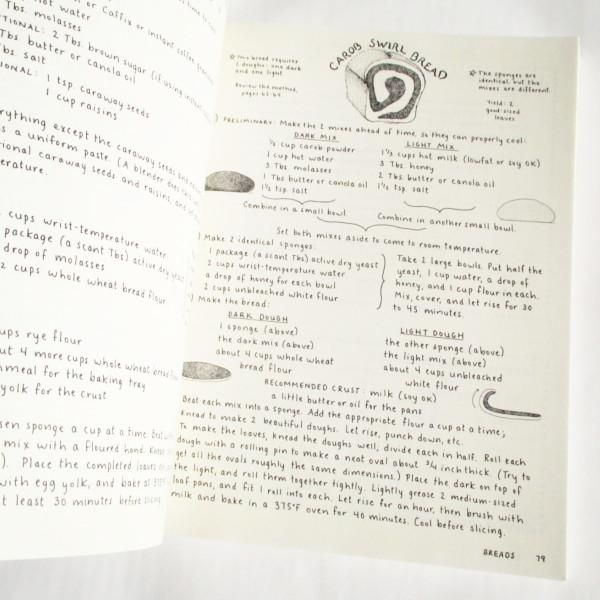 or Caffix or instant coffee granules
hot water
Tbs. molasses
OPTIONAL: 2 Tbs. brown sugar (if using instant
Tbs. butter or canola oil
Tbs. salt
OPTIONAL: 1 tsp. caraway seeds
1 cup raisins
everything except the caraway seeds and
a uniform paste. (A blender does
optional caraway seeds and raisins, and
temperature.
cups wrist-temperature water
package (a scant Tbs) active dry yeast
drop of molasses
2 cups whole wheat bread flour
cups rye flour
about 4 more cups whole wheat bread flour
cornmeal for the baking tray
yolk for the crust
sponge a cup at a time. Beat
mix with a floured hand.
Place the completed loaves on
with egg yolk, and bake at 375°F
at least 30 minutes before slicing.
CAROB SWIRL BREAD
☆ This bread requires
2 doughs: one dark
and one light
Review the method,
☆ The sponges are
identical, but the
mixes are different.
Yield: 2
good-sized
loaves
) PRELIMINARY: Make the 2 mixes ahead of time, so they can properly cool:
DARK MIX
½ cup carob powder
1 cup hot water
3 Tbs. molasses
1 Tbs butter or canola oil
1½ tsp. salt
Combine in a small bowl.
LIGHT MIX
1½ cups hot milk (lowfat or soy OK)
3 Tbs. honey
2 Tbs. butter or canola oil
1½ tsp. salt
Combine in another small bowl.
Set both mixes aside to come to room temperature.
) Make 2 identical sponges:
1 package (a scant Tbs) active dry yeast
2 cups wrist-temperature water
a drop of honey for each bowl
2 cups unbleached white flour
Take 2 large bowls. Put half the
yeast, 1 cup water, a drop of
honey, and 1 cup flour in each.
Mix, cover, and let rise for 30
to 45 minutes.
) Make the bread:
DARK DOUGH
1 sponge (above)
the dark mix (above)
about 4 cups whole wheat
bread flour
LIGHT DOUGH
the other sponge (above)
the light mix (above)
about 4 cups unbleached
white flour
RECOMMENDED CRUST: milk (soy OK)
a little butter or oil for the pans
Beat each mix into a sponge. Add the appropriate flour a cup at a time;
knead to make 2 beautiful doughs. Let rise, punch down, etc.
To make the loaves, knead the doughs well, divide each in half. Roll each
dough with a rolling pin to make a neat oval about ¾ inch thick. (Try to
get all the ovals roughly the same dimensions.) Place the dark on top of
the light, and roll them together tightly. Lightly grease 2 medium-sized
loaf pans, and fit 1 roll into each. Let rise for an hour, then brush with
milk and bake in a 375°F oven for 40 minutes. Cool before slicing.
BREADS 79